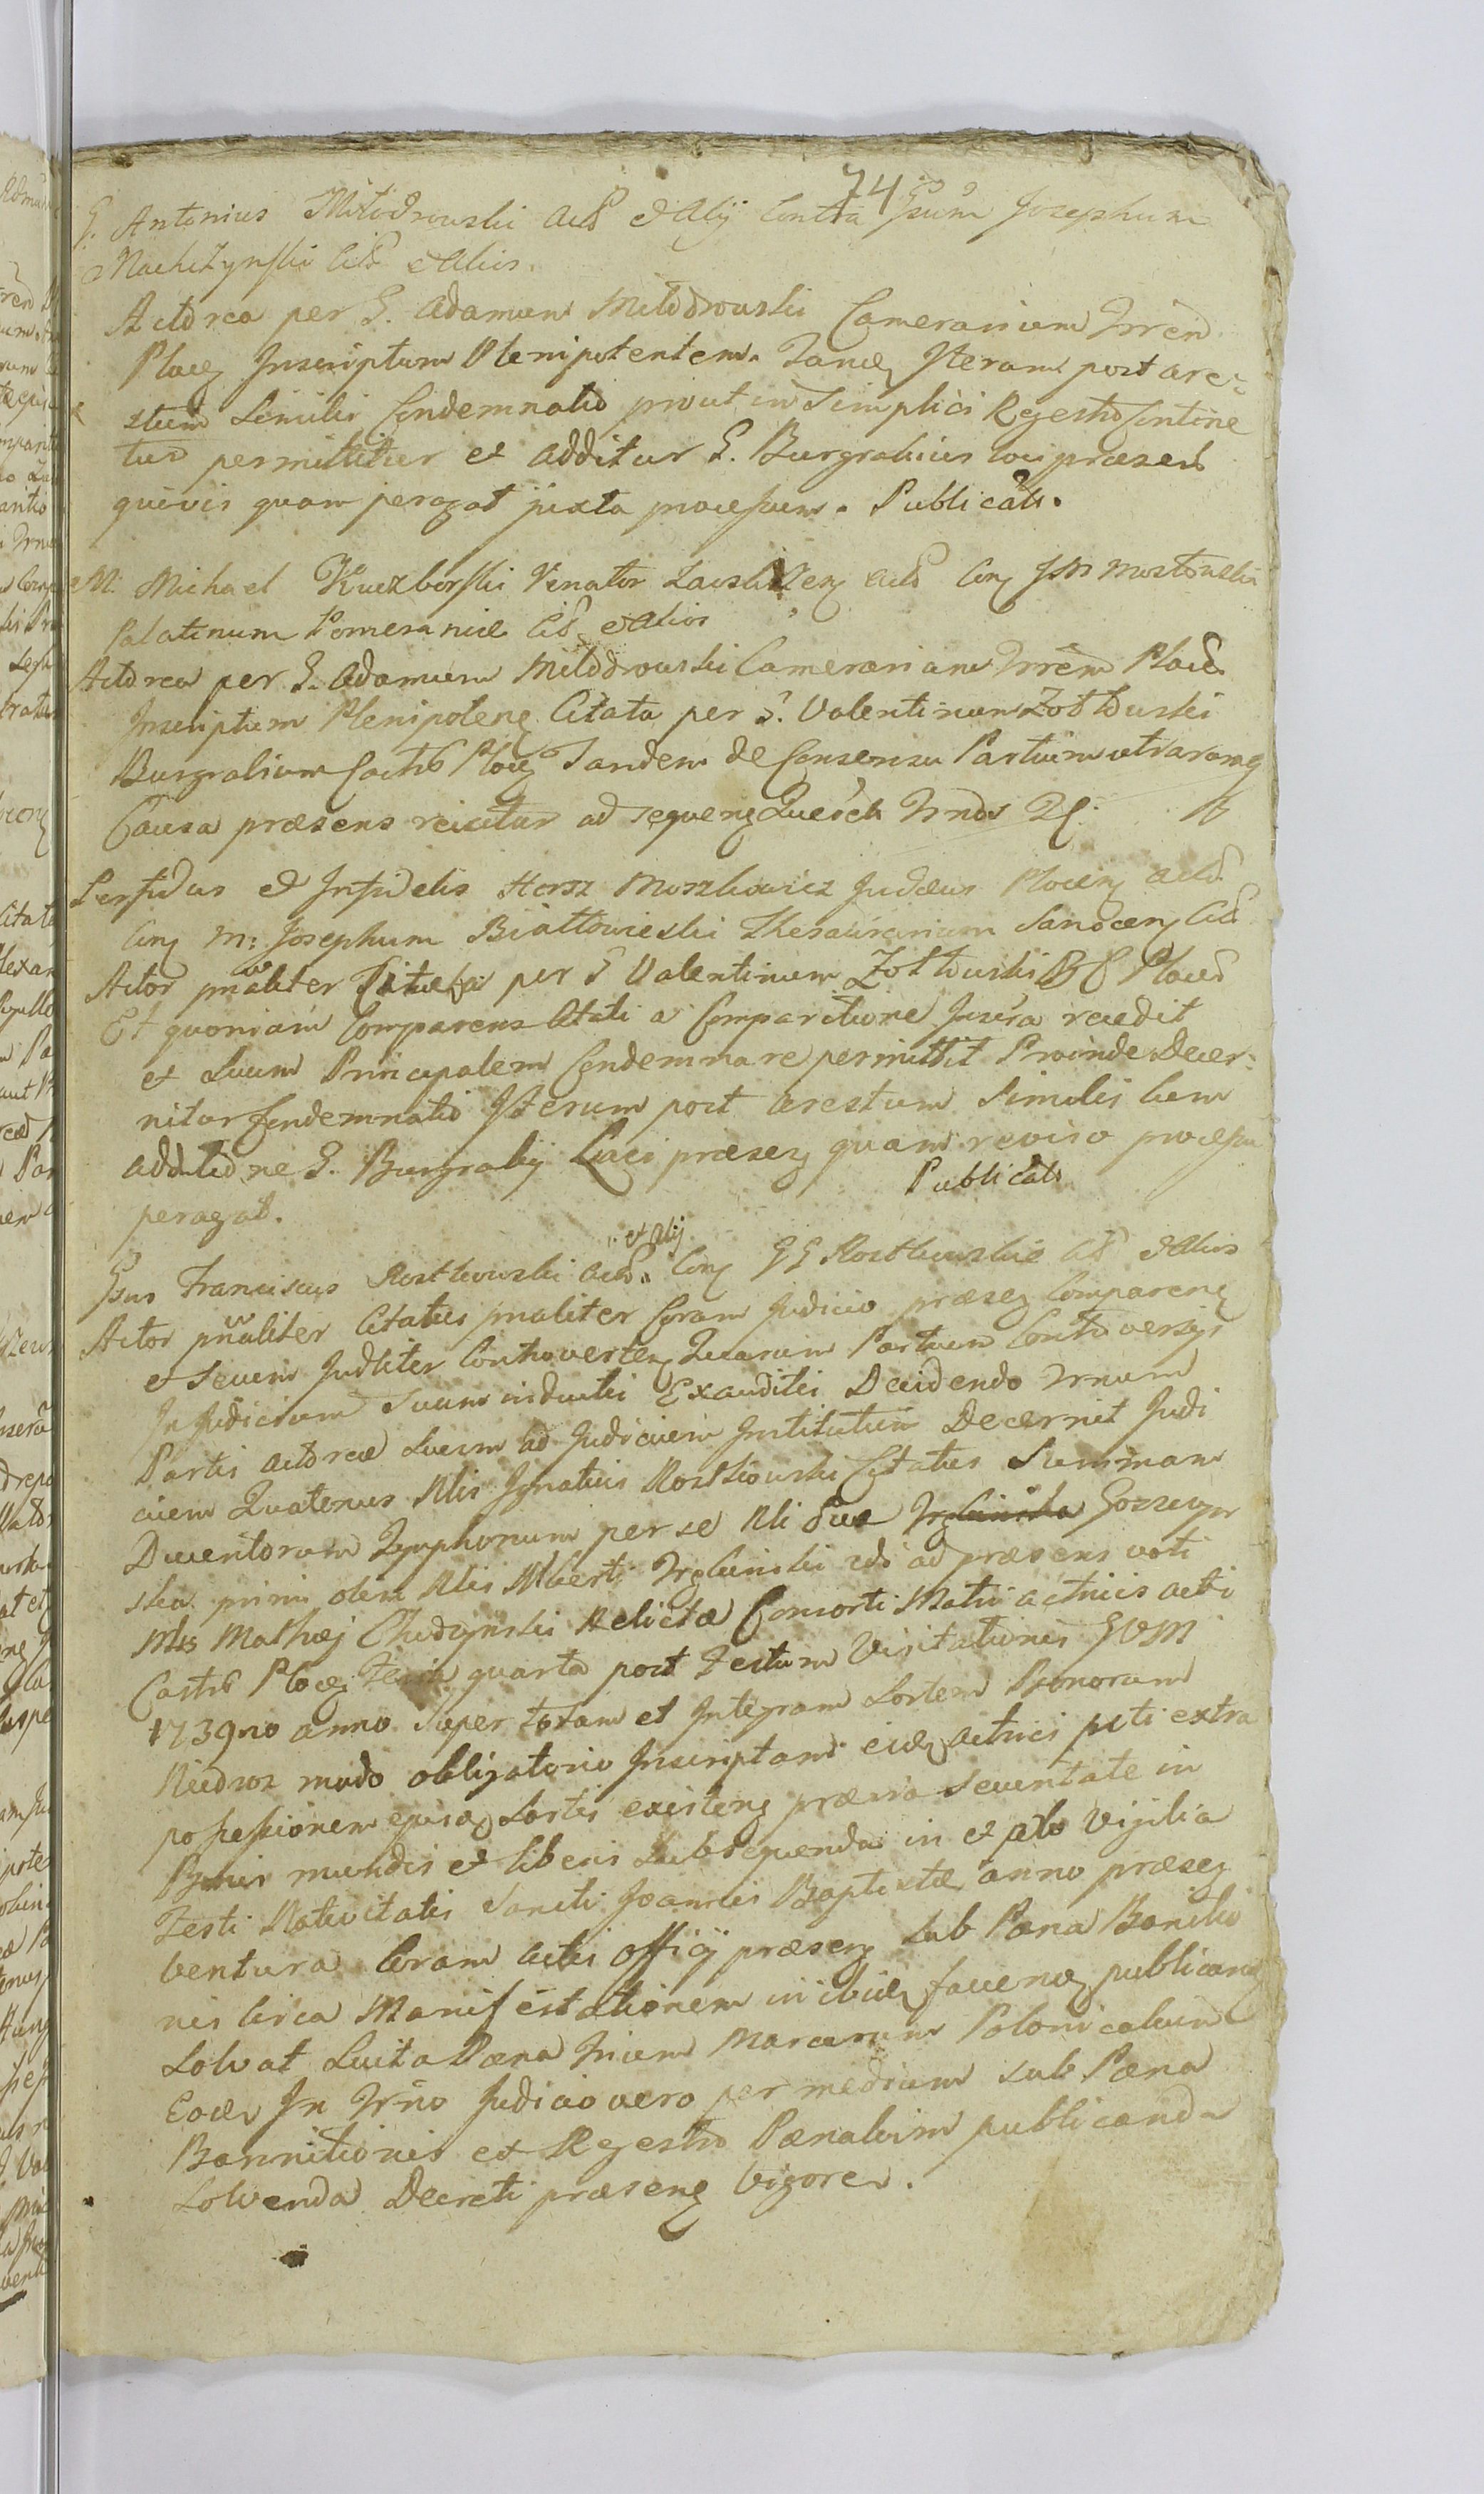 74
G. Antonius Miłodrowski Act. et Alij Contra Gsum Josephum
Machczynski Cit. et Alios.
Actorea per G. Adamum Miłodrowski Camerarium Trren
Plocen Inscriptum Plenipotentem. Tandem Iteram post are-
stum Similis Condemnatio prout in Simplici Regestro Contine
tur permittitur et additur G. Burgrabius loci praesens
quivis quam peragat juxta processum. Publicat.
M. Michael Kuczborski Venator Cit. Con JM Mostowski
Palatinum Pomeraniae Cit. et Alios
Actorea per G. Adamum Miłodrowski Camerarium Trren Ploc.
Inscriptum Plenipoten Citata per G. Valentinum Zołtowski
Burgrabium Castr Plocen Tandem de Consensu Partium utrarumq
Causa praesens reicitur ad sequen Querel Trnos
Perfidus et Infidelis Hersz Moszkowicz Judaeus Plocen Act.
Con M: Josephum Białłowieski Thesaurarium Sanocen Cit.
Actor pnaliter Citatus per G Valentinum Zołtowski B C Ploc
Et quoniam Comparens Citati a Comparitione recedit
et Suum Principalem Condemnare permittit Proinde Decer-
nitur Condemnatio Iterum post arestum Similis cum
additione G. Burgrabij Loci praesen quam reviso processu
peragat. Publicat.
et Alij
Gsus Franciscus Rostkowski Act. Con GG Rostkowskie Cit. et Alios
Actor pnaliter Citatus pnaliter Coram Judicio praesen Comparen
et Secum Judliter Controverten Quarum Partium Controversijs
In Judicium Suum inductis Exauditis Decidendo Trnum
Partis actoreae Suum ad Judicium Institutum Decernit Judi
cium Quatenus Nlis Ignatius Rostkowski Citatus Summam
Ducentorum Tymphonum per se Nli Evae Gosczyn
ska primi olim Nlis Alberti Trębinski 2do ad praesens voti
Nlis Mathaej Chudzynski Relictae Consorti Matri actricis acti
Castr Plocen Feria quarta post Festum Visitationis GVM
1739no anno Super totam et Integram Sortem Bonorum
Niedroz modo obligatorio Inscriptam eidem actrici pcti extra
possessionem ejusd Sortis existen praevia Scrutitate in
Bonis mundis et liberis Subsequenda in et pro Vigilia
Festi Nativitatis Sancti Joannis Baptistae anno praesen
Ventura Coram actis Officij praesen Sub Paena Banitio
nis Circa Manifestationem inibid faciend publicand
Solvat Luita Paena Trium Marcarum Polonicalium
Eod In Trno Judicio vero per medium sub Paena
Bannitionis ex Regestro Paenalium publicanda
Solvenda Decreti praesen Vigore.